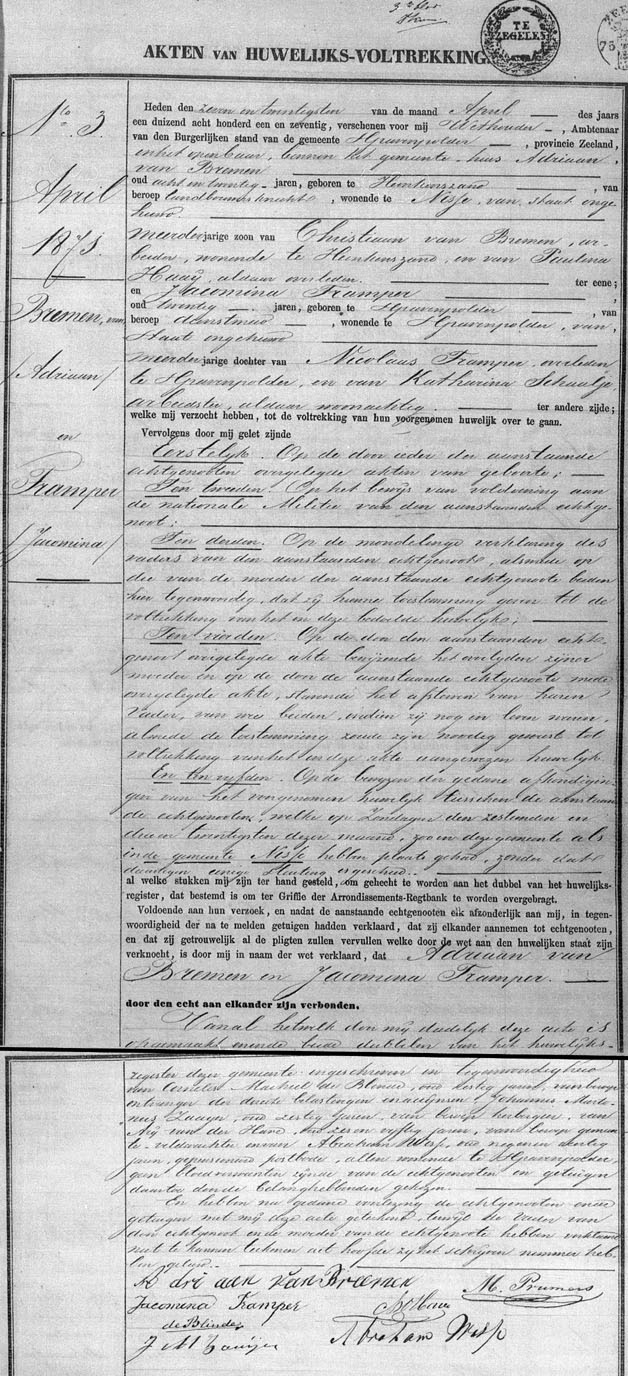 3de blad
TE
ZEGELEN
ZEE
75
AKTEN VAN HUWELIJKS-VOLTREKKING.
No. 3.
April
1871.
Bremen, van
/Adriaan/
en
Tramper
/Jacomina/
Heden den zeven en twintigsten van de maand April des jaars
een duizend acht honderd een en zeventig, verschenen voor mij Wethouder, Ambtenaar
van den Burgerlijken stand van de gemeente 'sGravenpolder, provincie Zeeland,
in het openbaar, binnen het gemeente-huis Adriaan
van Bremen
oud acht en twintig jaren, geboren te Heinkenszand, van
beroep landbouwersknecht, wonende te Nisse, van staat onge-
huwd
meerderjarige zoon van Christiaan van Bremen, ar-
beider, wonende te Heinkenszand, en van Paulina
Haaij, aldaar overleden. ter eene;
en Jacomina Tramper
oud twintig jaren, geboren te 'sGravenpolder, van
beroep dienstmeid, wonende te 'sGravenpolder, van
staat ongehuwd
meerderjarige dochter van Nicolaus Tramper, overleden
te 'sGravenpolder, en van Katharina Schaalje
arbeidster, aldaar woonachtig. ter andere zijde;
welke mij verzocht hebben, tot de voltrekking van hun voorgenomen huwelijk over te gaan.
Vervolgens door mij gelet zijnde
Eerstelijk. Op de door ieder der aanstaande
echtgenooten overgelegde akten van geboorte;
Ten tweeden. Op het bewijs van voldoening aan
de nationale Militie van den aanstaanden echtge-
noot;
Ten derden. Op de mondelinge verklaring des
vaders van den aanstaanden echtgenoot, alsmede op
die van de moeder der aanstaande echtgenoote beiden
hier tegenwoordig, dat zij hunne toestemming geven tot de
voltrekking van het in deze bedoelde huwelijk;
Ten vierden. Op de door den aanstaanden echt-
genoot overgelegde akte bewijzende het overlijden zijner
moeder en op de door de aanstaande echtgenoote mede
overgelegde akte, stavende het afsterven van haren
Vader, van wie beiden, indien zij nog in leven waren,
almede de toestemming zoude zijn noodig geweest tot
voltrekking van het in deze akte aangewezen huwelijk.
En ten vyfden. Op de bewyzen der gedane afkondigin-
gen van het voorgenomen huwelijk tusschen de aanstaan-
de echtgenooten, welke op Zondagen den zestienden en
drie en twintigsten dezer maand, zoo in deze gemeente als
in de gemeente Nisse hebben plaats gehad, zonder dat
daartegen eenige stuiting is geschied.
al welke stukken mij zijn ter hand gesteld, om gehecht te worden aan het dubbel van het huwelijks-
register, dat bestemd is om ter Griffie der Arrondissements-Regtbank te worden overgebragt.
Voldoende aan hun verzoek, en nadat de aanstaande echtgenooten elk afzonderlijk aan mij, in tegen-
woordigheid der na te melden getuigen hadden verklaard, dat zij elkander aannemen tot echtgenooten,
en dat zij getrouwelijk al de pligten zullen vervullen welke door de wet aan den huwelijken staat zijn
verknocht, is door mij in naam der wet verklaard, dat Adriaan van
Bremen en Jacomina Tramper.
door den echt aan elkander zijn verbonden.
Van al hetwelk door mij dadelijk deze acte is
opgemaakt, en in de beide dubbelen van het huwelijks-
register dezer gemeente ingeschreven in tegenwoordigheid
van Cornelis Machiel de Blinde, oud veertig jaren, van beroep
ontvanger der directe belastingen en accijnsen, Johannes Marti-
nus Zauijer, oud zestig jaren, van beroep herbergier, van
Arij van der Hans, oud zeven vyftig jaren, van beroep gemeen-
te-veldwachter en van Abraham Wesp, oud negen en veertig
jaren, gepensioneerd postbode, allen wonende te 'sGravenpolder,
geen bloedverwanten zijnde van de echtgenooten en getuigen
daartoe door de belanghebbenden gekozen.
En hebben na gedane voorlezing de echtgenooten en de
getuigen met mij deze acte geteekend, terwijl de vader van
den echtgenoot en de moeder van de echtgenoote hebben verklaard
niet te kunnen teekenen uit hoofde zij het schrijven nimmer heb-
ben geleerd.
A dri aan van Breemen
M. Prumers
Jacomina Tramper
de Blinde
J M Zauijer
Abraham Wesp